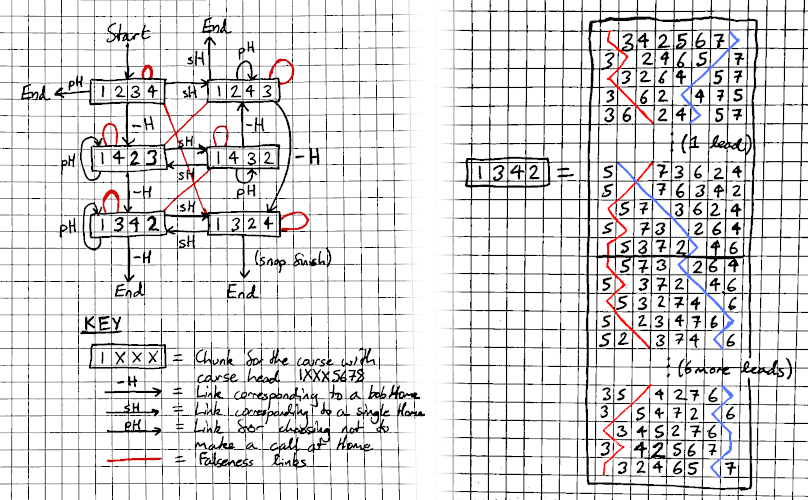 Start
End
sH
pH
End
pH
1 2 3 4
sH
1 2 4 3
-H
-H
pH
1 4 2 3
sH
sH
1 4 3 2
-H
-H
pH
pH
1 3 4 2
sH
sH
1 3 2 4
-H
(snap finish)
End
End
KEY
1 X X X = Chunk for the course with
course head 1XXX5678
-H = Link corresponding to a bob Home
sH = Link corresponding to a single Home
pH = Link for choosing not to
make a call at Home
= Falseness links
1 3 4 2 =
3 4 2 5 6 7
3 2 4 6 5 7
3 2 6 4 5 7
3 6 2 4 7 5
3 6 2 4 5 7
(1 lead)
5 7 3 6 2 4
5 7 6 3 4 2
5 7 3 6 2 4
5 7 3 2 6 4
5 3 7 2 4 6
5 7 3 2 6 4
5 3 7 2 4 6
5 3 2 7 4 6
5 2 3 4 7 6
5 2 3 7 4 6
(6 more leads)
3 5 4 2 7 6
3 5 4 7 2 6
3 4 5 2 7 6
3 4 2 5 6 7
3 2 4 6 5 7